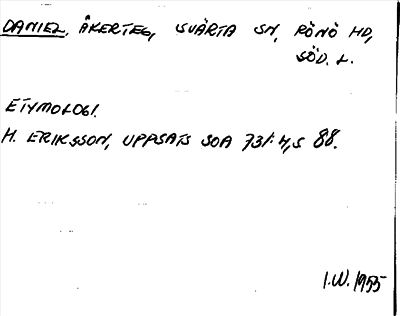 DANIEL, ÅKERTEG, SVÄRTA SN, RÖNÖ HD,
SÖD. L.
ETYMOLOGI.
H. ERIKSSON, UPPSATS SOA 731:4, S 88.
I.W. 1955